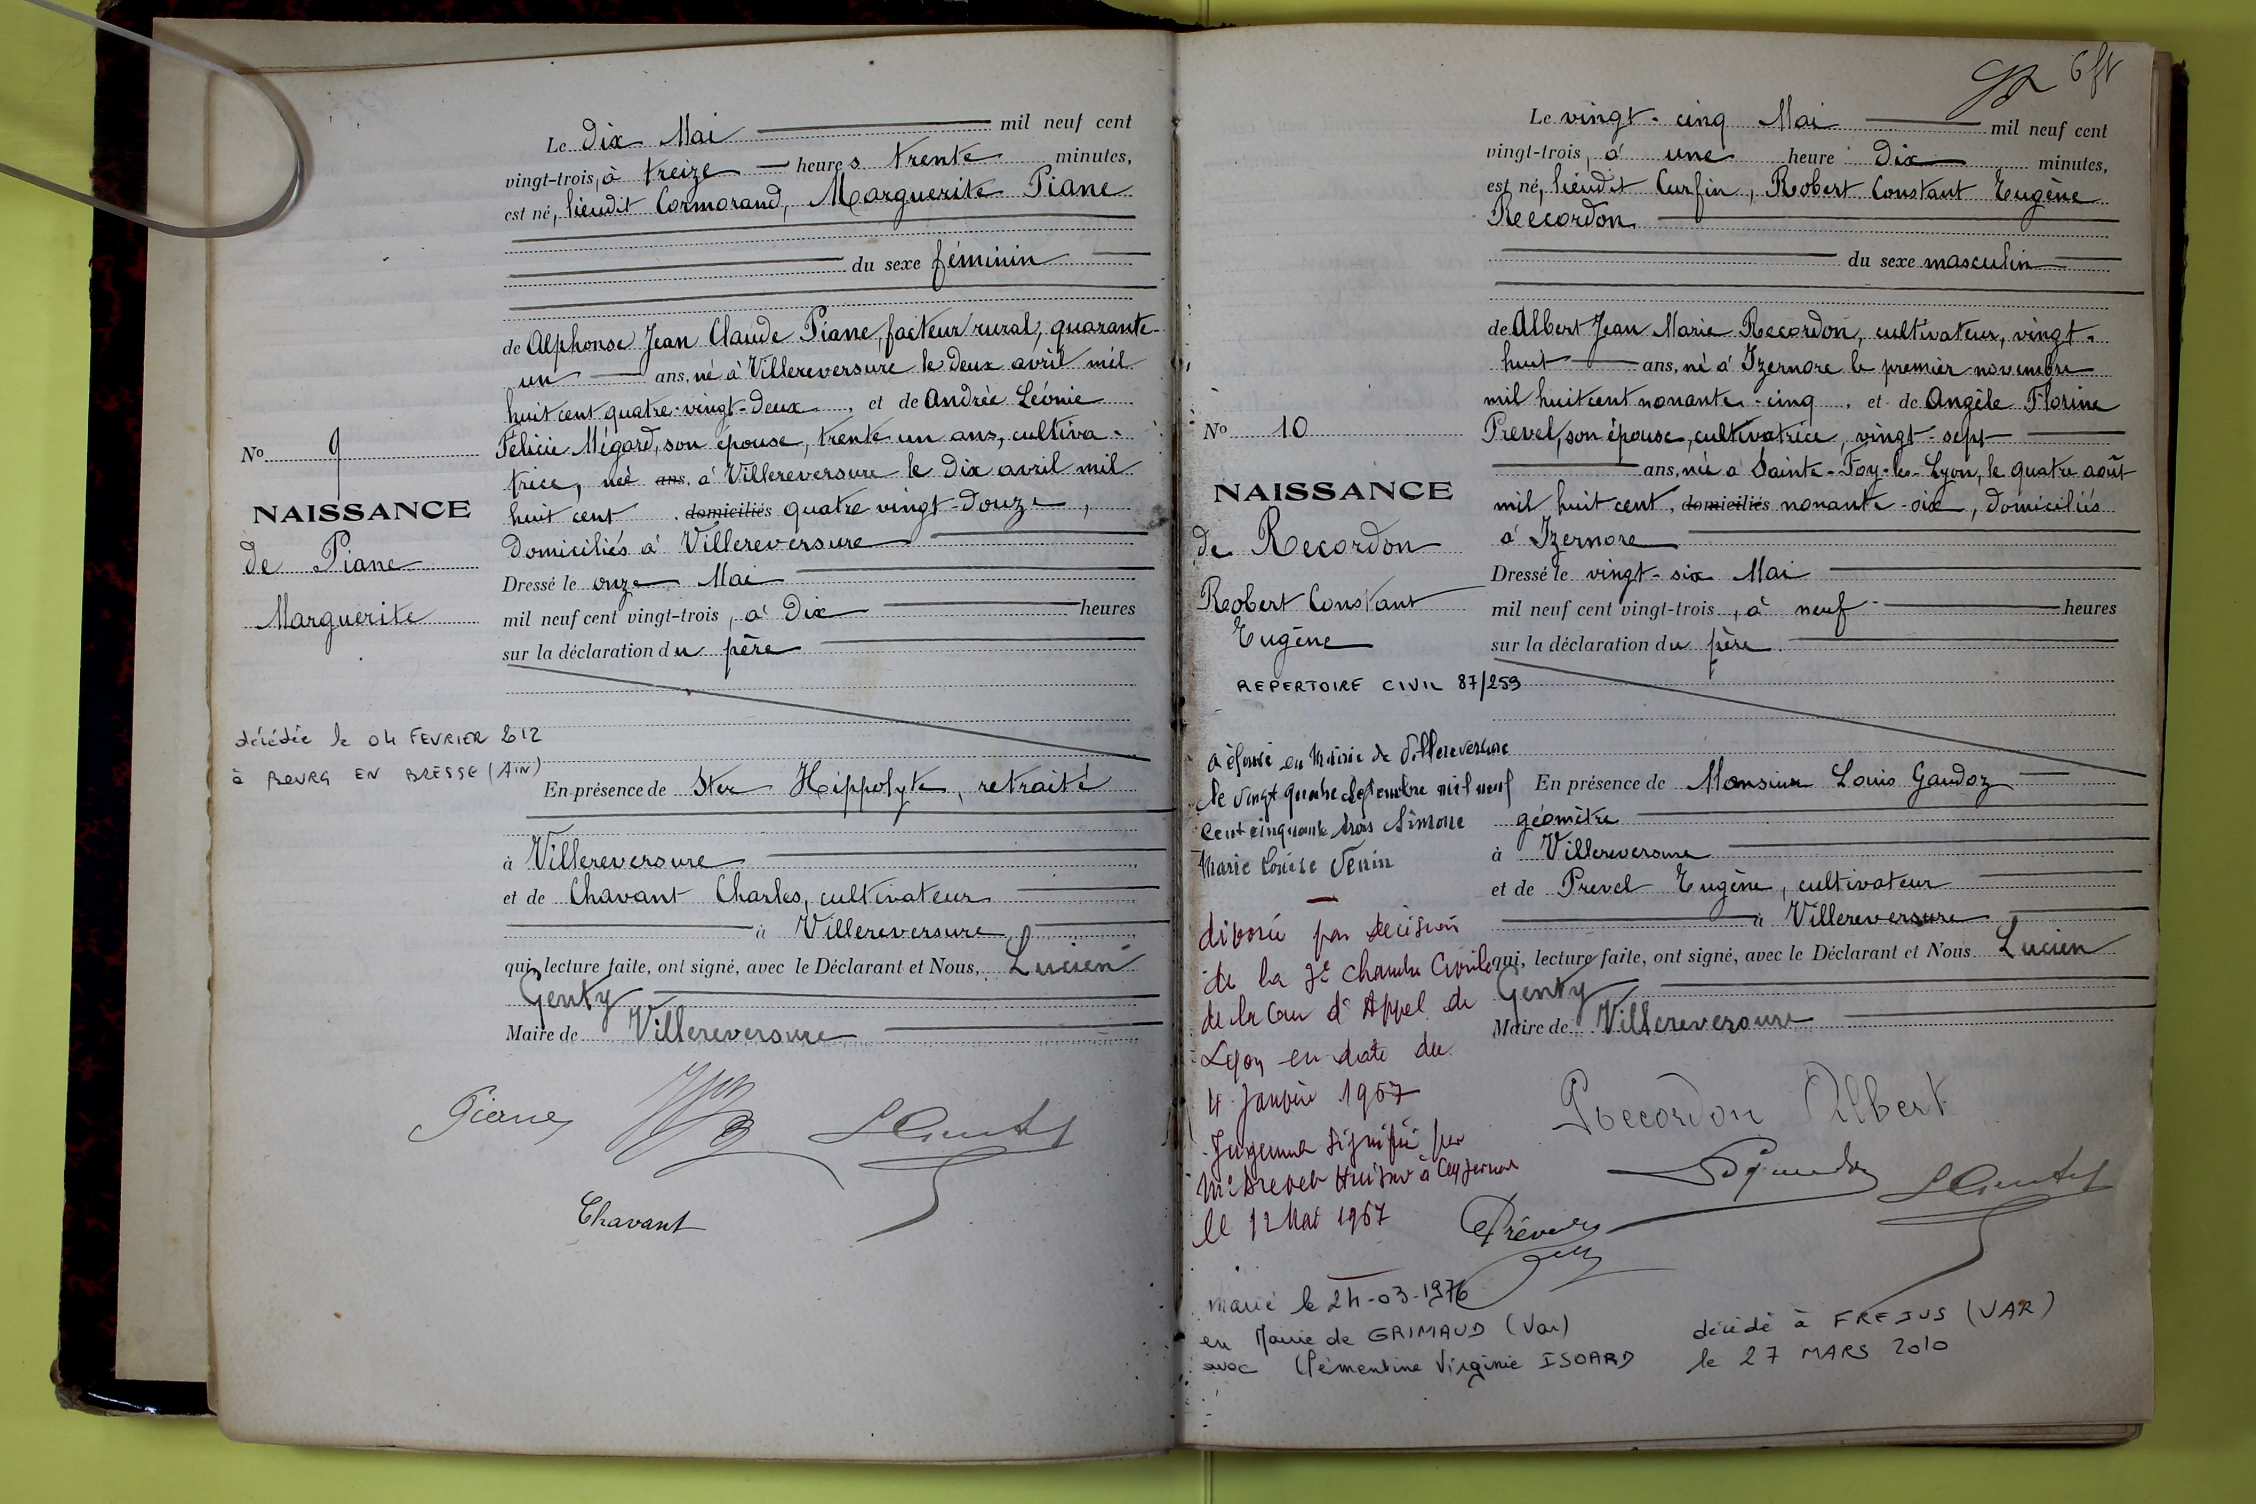 Le dix Mai mil neuf cent
vingt-trois, à treize heures trente minutes,
est né, lieudit Cormorand, Marguerite Piane
du sexe féminin
de Alphonse Jean Claude Piane, facteur rural, quarante-
un ans, né à Villereversure le deux avril mil
huit cent quatre-vingt-deux, et de Andrée Léonie
Félicie Mégard, son épouse, trente un ans, cultiva-
trice, née ans, à Villereversure le dix avril mil
huit cent domiciliés quatre vingt-douze,
domiciliés à Villereversure
Dressé le onze Mai
mil neuf cent vingt-trois, à dix heures
sur la déclaration du père
En présence de Ster Hippolyte, retraité
à Villereversure
et de Chavant Charles, cultivateur
à Villereversure
qui, lecture faite, ont signé, avec le Déclarant et Nous, Lucien
Genty
Maire de Villereversure
Piane
Chavant
No 9
NAISSANCE
de Piane
Marguerite
décédée le 04 FEVRIER 2012
à BOURG EN BRESSE (AIN)
6 ft
Le vingt-cinq Mai mil neuf cent
vingt-trois, à une heure dix minutes,
est né, lieudit Curfin, Robert Constant Eugène
Reccordon
du sexe masculin
de Albert Jean Marie Recordon, cultivateur, vingt-
huit ans, né à Izernore le premier novembre
mil huit cent nonante-cinq, et de Angèle Florine
Prevel, son épouse, cultivatrice, vingt-sept
ans, née à Sainte-Foy-les-Lyon, le quatre août
mil huit cent, domiciliés nonante-six, domiciliés
à Izernore
Dressé le vingt-six Mai
mil neuf cent vingt-trois, à neuf heures
sur la déclaration du père
En présence de Monsieur Louis Gandoz
géomètre
à Villereversure
et de Prevel Eugène, cultivateur
à Villereversure
qui, lecture faite, ont signé, avec le Déclarant et Nous Lucien
Genty
Maire de Villereversure
Reccordon Albert
No 10
NAISSANCE
de Recordon
Robert Constant
Eugène
REPERTOIRE CIVIL 87/259
a épousé en Mairie de Villereversure
le vingt quatre Septembre mil neuf
cent cinquante trois Simone
Marie Louise Venin
divorcé par decision
de la 7e chambre Civile
de la Cour d'Appel de
Lyon en date du
4 Janvier 1967
Jugement signifié par
Me Huissier à Ceyzeriat
le 12 Mai 1967
marié le 24-03-1976
en Mairie de GRIMAUD (Var)
avec Clémentine Virginie ISOARD
décédé à FREJUS (VAR)
le 27 MARS 2010